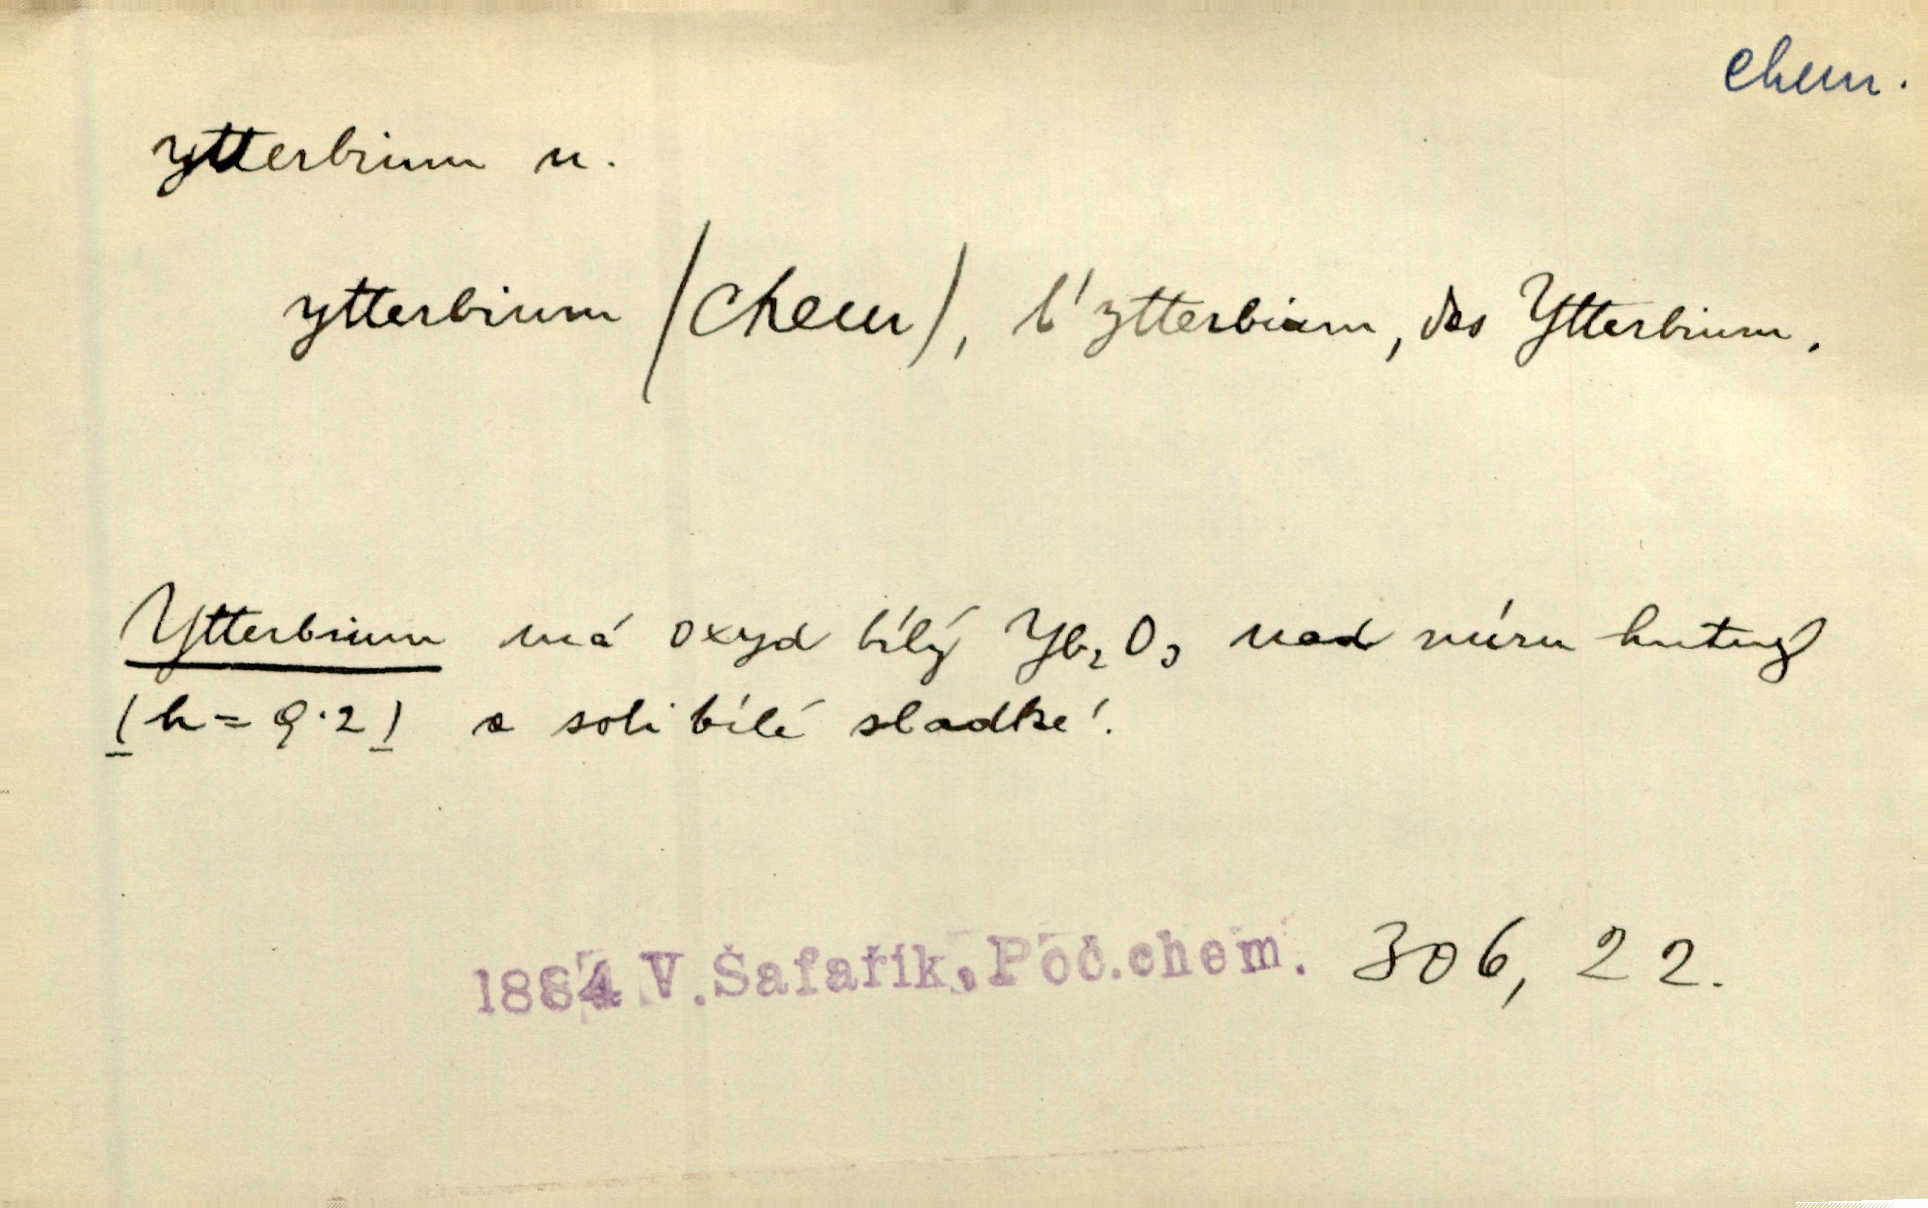 chem.
ytterbium n.
ytterbium (chem), l'ytterbium, das Ytterbium.
Ytterbium má oxyd bílý Yb₂O₃ nad míru hutný
(h = 9·2) a soli bílé sladké.
1884 V. Šafařík, Poč.chem. 306, 22.